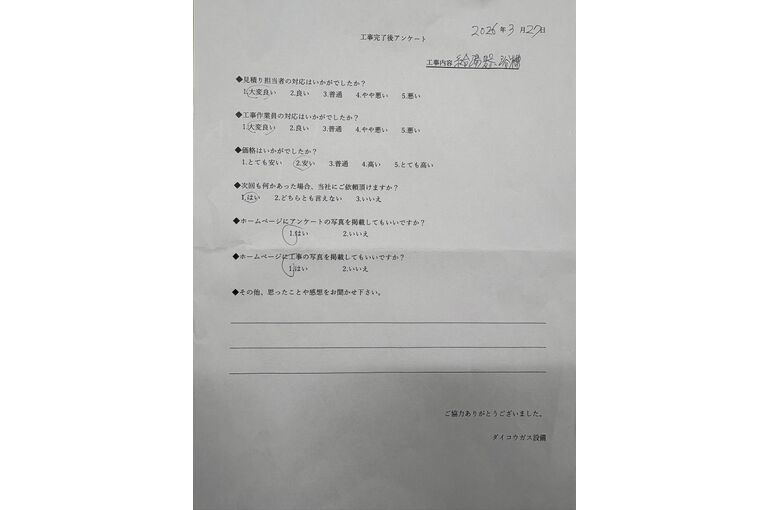 2026年3月27日
工事完了後アンケート
工事内容 給湯器 浴槽
◆見積り担当者の対応はいかがでしたか?
1.大変良い 2.良い 3.普通 4.やや悪い 5.悪い
◆工事作業員の対応はいかがでしたか?
1.大変良い 2.良い 3.普通 4.やや悪い 5.悪い
◆価格はいかがでしたか?
1.とても安い 2.安い 3.普通 4.高い 5.とても高い
◆次回も何かあった場合、当社にご依頼頂けますか?
1.はい 2.どちらとも言えない 3.いいえ
◆ホームページにアンケートの写真を掲載してもいいですか?
1.はい 2.いいえ
◆ホームページに工事の写真を掲載してもいいですか?
1.はい 2.いいえ
◆その他、思ったことや感想をお聞かせ下さい。
ご協力ありがとうございました。
ダイコウガス設備